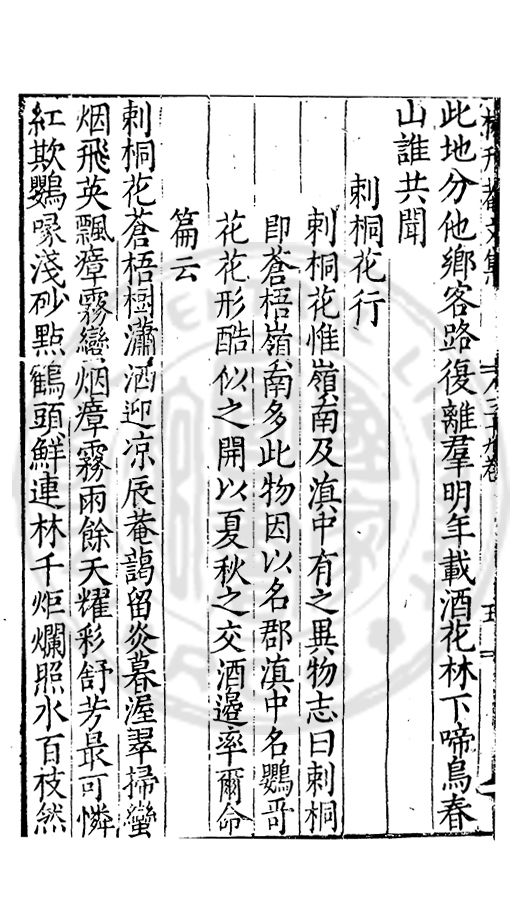 此地分他鄉客路復離羣明年載酒花林下啼鳥春
山誰共聞
刺桐花行
刺桐花惟嶺南及滇中有之異物志曰刺桐
即蒼梧嶺南多此物因以名郡滇中名鸚哥
花花形酷似之開以夏秋之交酒邉率爾命
篇云
刺桐花蒼梧樹瀟洒迎凉辰菴藹留炎暮渥翠掃蠻
烟飛英飄瘴霧蠻烟瘴霧雨餘天耀彩舒芳最可憐
紅欺鸚喙淺砂點鶴頭鮮連林千炬爛照水百枝然